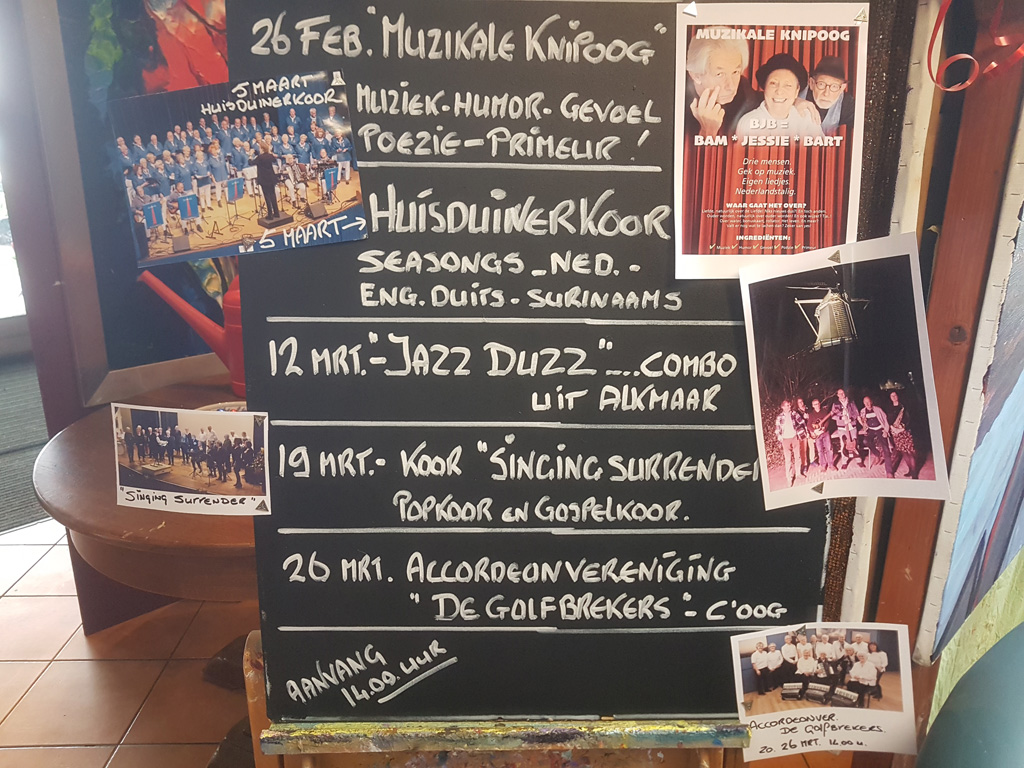 26 FEB. "MUZIKALE KNIPOOG"
MUZIEK-HUMOR-GEVOEL
POEZIE-PRIMEUR!
5 MAART
HUISDUINERKOOR
5 MAART→
HUISDUINERKOOR
SEASONGS-NED.-
ENG. DUITS-SURINAAMS
12 MRT.-"JAZZ DUZZ"-...COMBO
UIT ALKMAAR
19 MRT.- KOOR "SINGING SURRENDER
POPKOOR EN GOSPELKOOR.
"SINGING SURRENDER"
26 MRT. ACCORDEONVERENIGING
"DE GOLFBREKERS"- C'OOG
AANVANG
14.00. UUR
MUZIKALE KNIPOOG
BJB =
BAM * JESSIE * BART
Drie mensen.
Gek op muziek.
Eigen liedjes.
Nederlandstalig.
WAAR GAAT HET OVER?
INGREDIËNTEN:
✓ Muziek ✓ Humor ✓ Gevoel ✓ Poëzie ✓ Primeur
ACCORDEONVER.
DE GOLFBREKERS.
ZO. 26 MRT. 14.00 u.